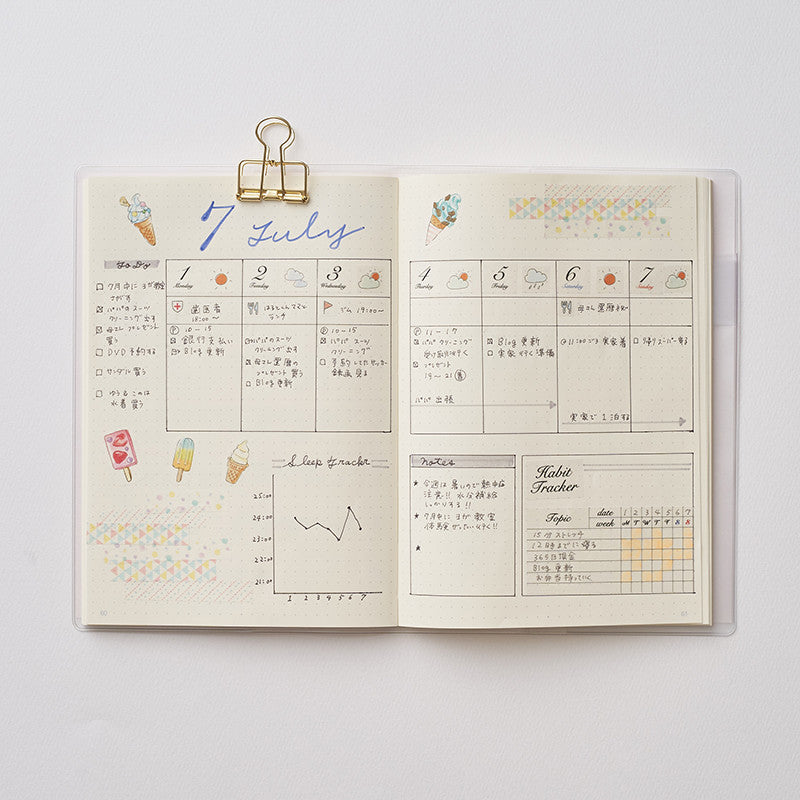 7 July
To Do
7月中にヨガ教室
さがす
パパのスーツ
クリーニング出す
母さんプレゼント
買う
DVD 予約する
サンダル 買う
水着 買う
1
Monday
歯医者
18:00〜
10-15
銀行支払い
Blog 更新
2
Tuesday
ランチ
パパのスーツ
クリーニング出す
母さん還暦の
プレゼント 買う
Blog 更新
3
Wednesday
ジム 19:00〜
10-15
パパ スーツ
クリーニング
4
Thursday
11-17
パパ クリーニング
受け取り行く
プレゼント
19-21
パパ 出張
5
Friday
Blog 更新
実家 行く準備
6
Saturday
母さん 還暦祝い
11:00ごろ 実家着
実家で 1泊する
7
Sunday
帰りスーパー寄る
Sleep Tracker
25:00
24:00
23:00
22:00
21:00
1 2 3 4 5 6 7
Notes
★ 今週は暑いので熱中症
注意!! 水分補給
しっかりする!!
★ 7月中にヨガ教室
★
Habit
Tracker
Topic
date 1 2 3 4 5 6 7
week M T W T F S S
15分ストレッチ
12時までに寝る
365日貯金
Blog 更新
お弁当持っていく
60
61